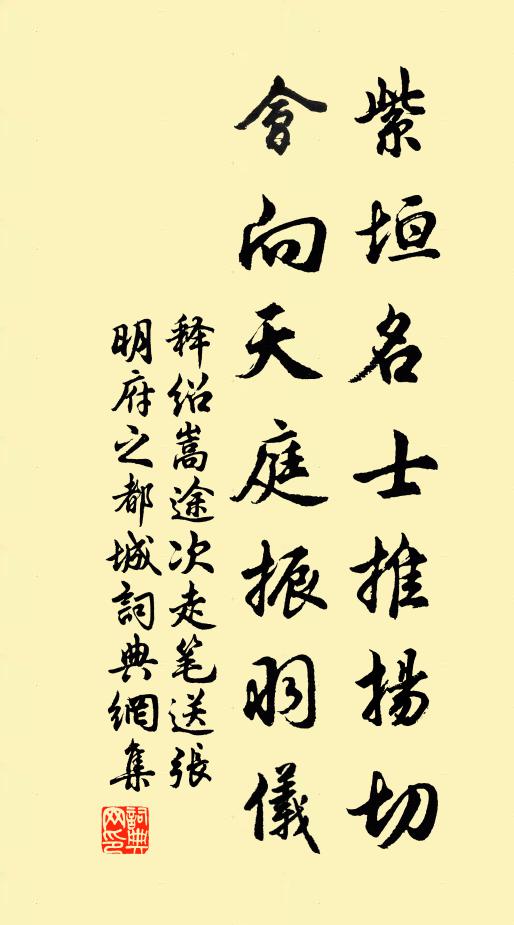 紫垣名士推揚切
會向天庭振羽儀
释绍嵩途次走笔送張
明府之都城詞典網集
詞典
网印